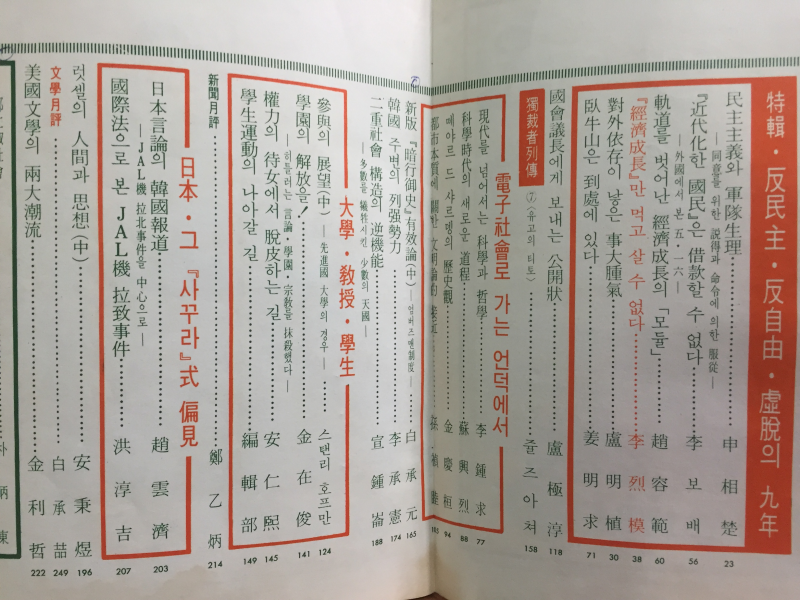 特輯・反民主・反自由・虛脫의 九年
民主主義와 軍隊生理 申相楚 23
—同意를 위한 說得과 命令에 의한 服從—
『近代化한 國民』은 借款할 수 없다 李보배 56
—外國에서 본 五・一六—
軌道를 벗어난 經濟成長의 「모듈」 趙容範 60
『經濟成長』만 먹고 살 수 없다 李烈模 38
對外依存이 낳은 事大腫氣 盧明植 30
臥牛山은 到處에 있다 姜明求 71
國會議長에게 보내는 公開狀 盧極淳 118
獨裁者列傳 ⑦〈유고의 티토〉 쥴즈 아쳐 158
電子社會로 가는 언덕에서
現代를 넘어서는 科學과 哲學 李鍾求 77
科學時代의 새로운 道程 蘇興烈 88
떼야르 드 샤르뎅의 歷史觀 金慶桓 94
都市本質에 關한 文明論的
新版 『暗行御史』有效論(中) —옴버즈맨制度— 白承元 165
韓國 주변의 列强勢力 李承憲 174
二重社會 構造의 逆機能 宣鍾崙 188
—多數를 犧牲시킨 少數의 天國—
大學・敎授・學生
參與의 展望(中) —先進國 大學의 경우— 스탠리 호프만 124
學園의 解放을! 金在俊 141
—히틀러는 言論・學園・宗敎를 抹殺했다—
權力의 待女에서 脫皮하는 길 安仁熙 145
學生運動의 나아갈 길 編輯部 149
新聞月評 鄭乙炳 214
日本・그 『사꾸라』式 偏見
日本言論의 韓國報道 趙雲濟 203
—JAL機 拉北事件을 中心으로—
國際法으로 본 JAL機 拉致事件 洪淳吉 207
럿셀의 人間과 思想(中) 安秉煜 196
文學月評 白承喆 249
美國文學의 兩大潮流 金利哲 222